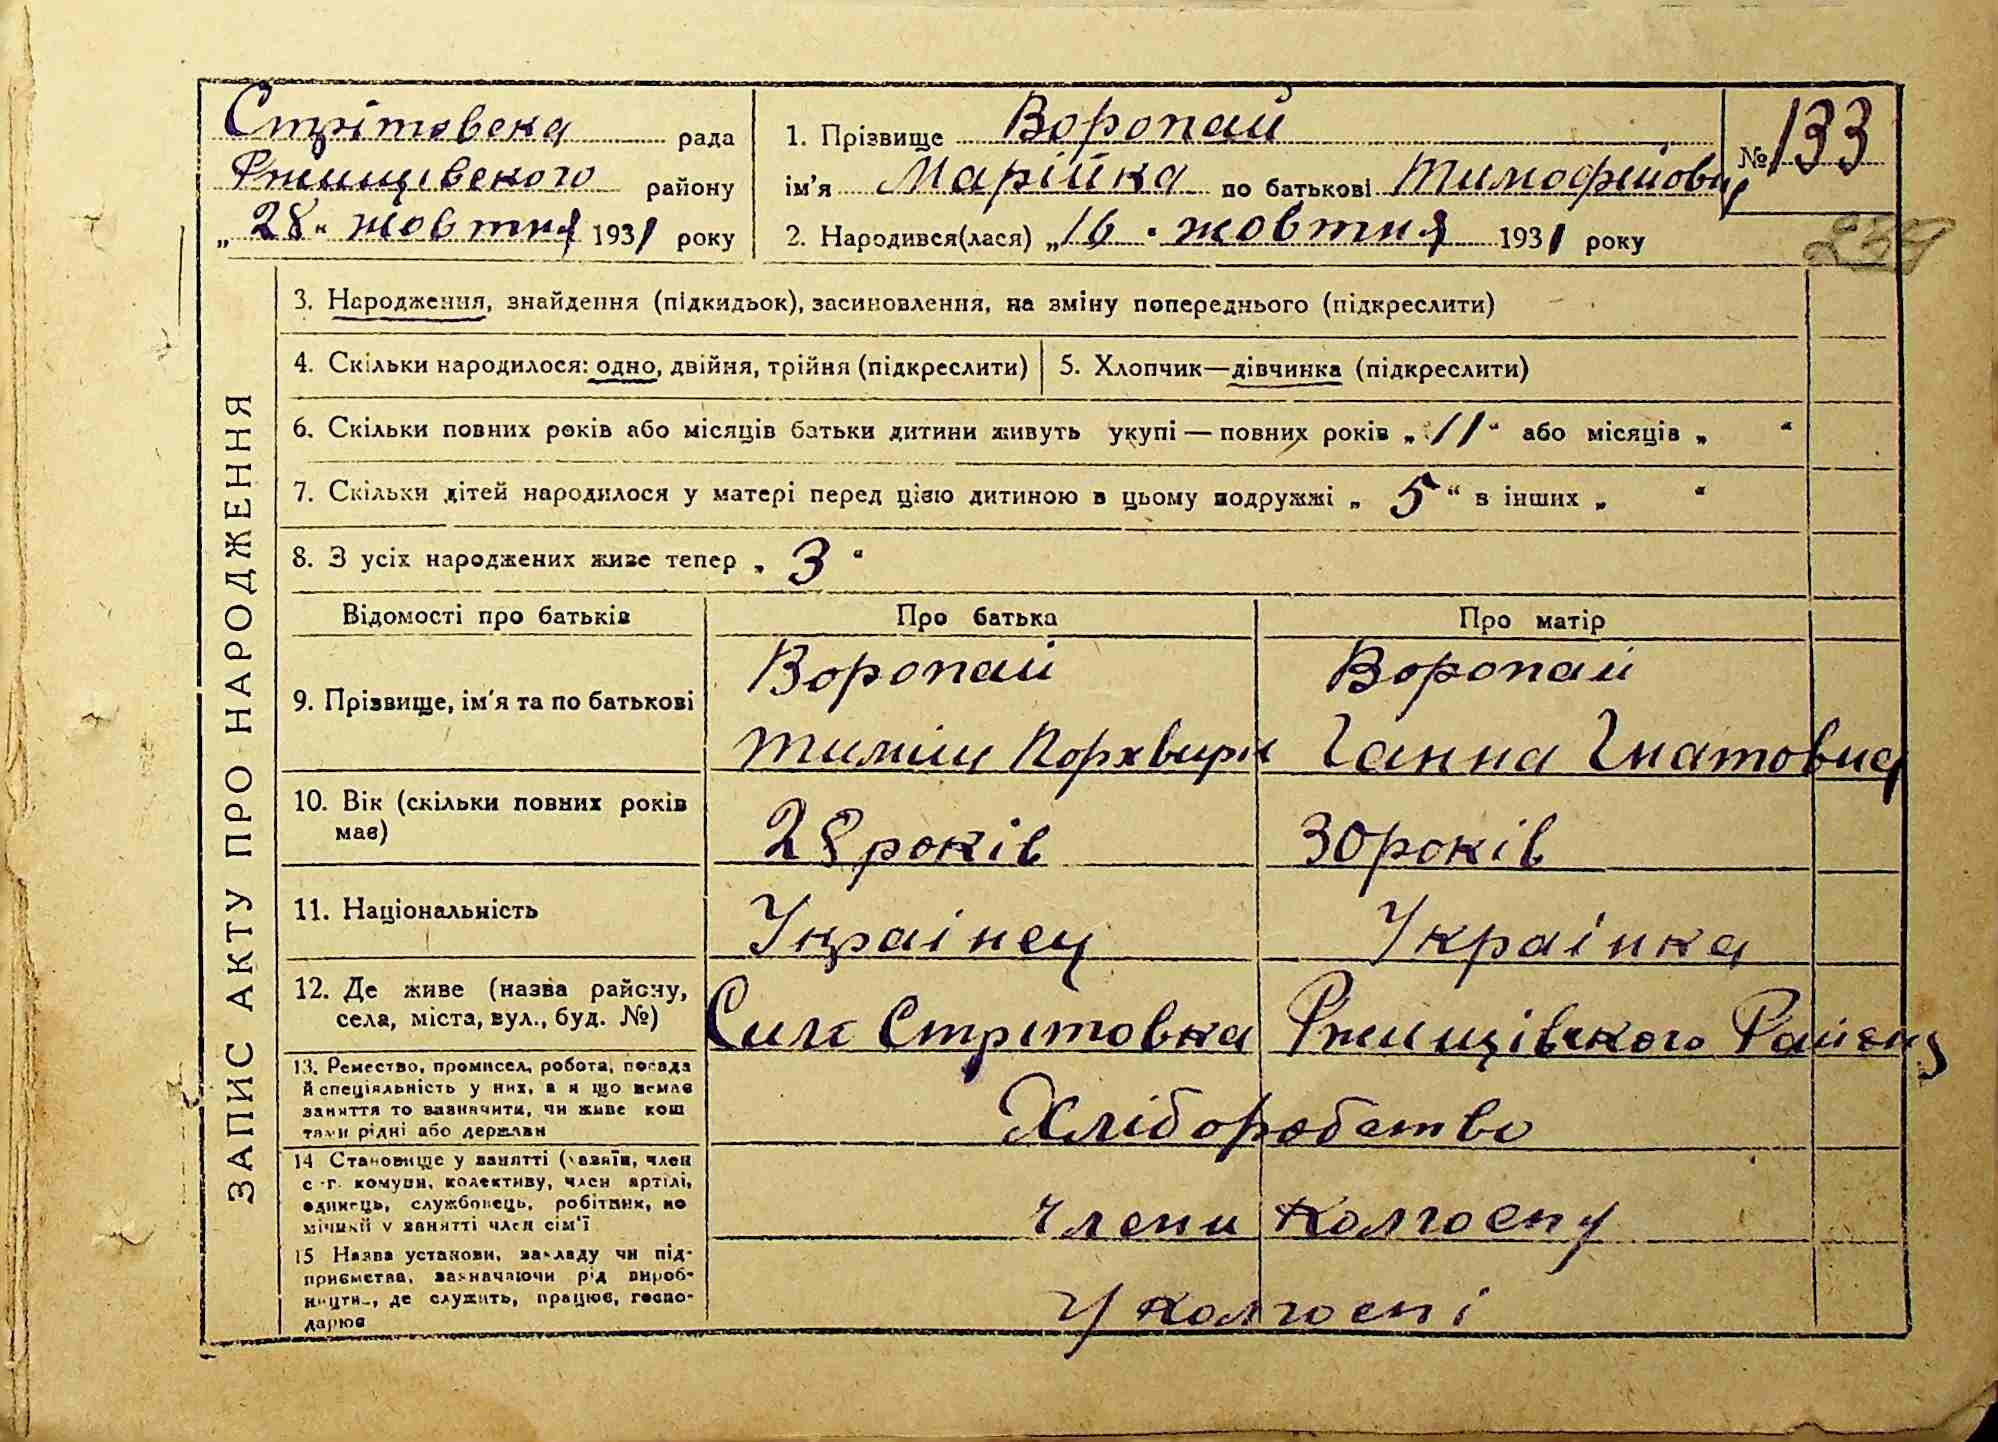 Стрітовска рада
Ржищівского району
„28" жовтня 1931 року
1. Прізвище Воропай
ім'я Марійка по батькові Тимофійовн
2. Народився(лася) „16 жовтня 1931 року
№ 133
239
ЗАПИС АКТУ ПРО НАРОДЖЕННЯ
3. Народження, знайдення (підкидьок), засиновлення, на зміну попереднього (підкреслити)
4. Скільки народилося: одно, двійня, трійня (підкреслити)
5. Хлопчик—дівчинка (підкреслити)
6. Скільки повних років або місяців батьки дитини живуть укупі — повних років „11“ або місяців „ “
7. Скільки дітей народилося у матері перед цією дитиною в цьому подружжі „ 5 “ в інших „ “
8. З усіх народжених живе тепер „ 3 “
Відомості про батьків
Про батька
Про матір
9. Прізвище, ім'я та по батькові
Воропай
Воропай
Тиміш Порхвири
Ганна Гнатовна
10. Вік (скільки повних років
має)
28 років
30 років
11. Національність
Украінец
Украінка
12. Де живе (назва району,
села, міста, вул., буд. №)
Стрітовка Ржищівского Району
13. Ремество, промисел, робота, посада
й спеціяльність у них, а я що немає
заняття то зазначити, чи живе кош
тами рідні або держави
Хліборобство
14 Становище у занятті (хазяїн, член
с.-г. комуни, колективу, член артілі,
одинець, службовець, робітник, по
мічний у занятті член сім'ї
Члени колгоспу
15 Назва установи, закладу чи під-
приємства, зазначаючи рід вироб-
ництв., де служить, працює, госпо-
дарює
У колгоспі